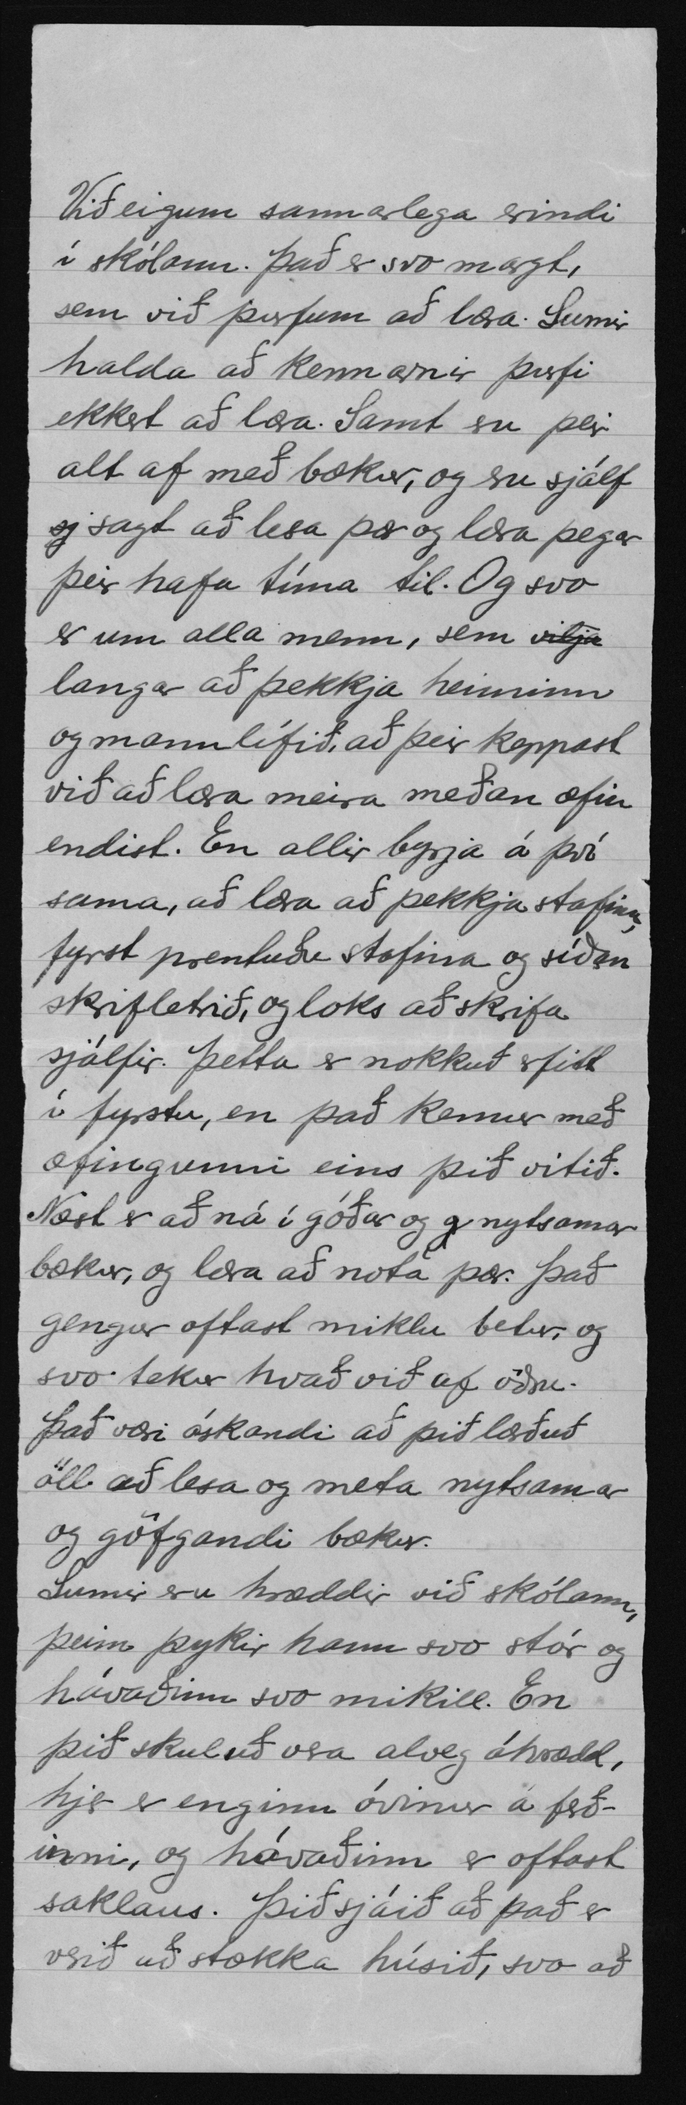 Við eigum sannarlega erindi
í skólann. Það er svo margt,
sem við þurfum að læra. Sumir
halda að kennarnir þurfi
ekkert að læra. Samt eru þeir
alt af með bækur, og eru sjálf
sj sagt að lesa þær og læra þegar
þeir hafa tíma til. Og svo
er um alla menn, sem vilja
langar að þekkja heiminn
og mannlífið, að þeir keppast
við að læra meira meðan æfin
endist. En allir byrja á því
sama, að læra að þekkja stafina,
fyrst prentuðu stafina og síðan
skrifletrið, og loks að skrifa
sjálfir. Þetta er nokkuð erfitt
í fyrstu, en það kemur með
æfingunni eins þið vitið.
Næst er að ná í góðar og g nytsamar
bækur, og læra að nota þær. Það
gengur oftast miklu betur, og
svo tekur hvað við af öðru.
Það væri óskandi að þið lærðuð
öll að lesa og meta nytsamar
og göfgandi bækur.
Sumir eru hræddir við skólann,
þeim þykir hann svo stór og
hávaðinn svo mikill. En
þið skuluð vera alveg óhrædd,
hjer er enginn óvinur á ferð-
inni, og hávaðinn er oftast
saklaus. Þið sjáið að það er
verið að stækka húsið, svo að